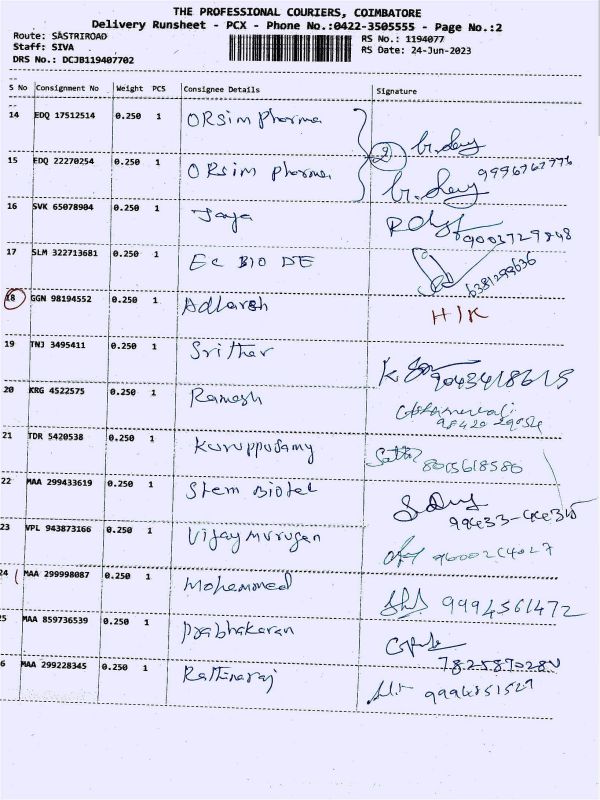 THE PROFESSIONAL COURIERS, COIMBATORE
Delivery Runsheet - PCX - Phone No.:0422-3505555 - Page No.:2
Route: SASTRIROAD
Staff: SIVA
DRS No.: DCJB119407702
RS No.: 1194077
RS Date: 24-Jun-2023
S No Consignment No Weight PCS Consignee Details Signature
14 EDQ 17512514 0.250 1 ORSim Pharma
15 EDQ 22270254 0.250 1 ORSim pharma 2 9996767776
16 SVK 65078904 0.250 1 Jaya 9003729848
17 SLM 322713681 0.250 1 EC BIO DE 6381299636
18 GGN 98194552 0.250 1 Adharsh H/K
19 TNJ 3495411 0.250 1 Srither 9043418615
20 KRG 4522575 0.250 1 Ramesh
21 TDR 5420538 0.250 1 Kuruppusamy 8015618580
22 MAA 299433619 0.250 1 Stem Biotel
23 VPL 943873166 0.250 1 Vijay Murugan
24 MAA 299998087 0.250 1 Mohammed 9994561472
5 MAA 859736539 0.250 1 Prabhakaran
6 MAA 299228345 0.250 1 Rathinaraj 9994851527